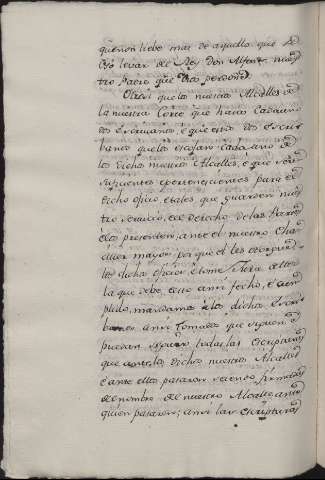 que non liebe mas de aquello que se
usó levar del Rey Don Alfonso nues
tro Padre que Dios perdone.
Otrosi que los nuestros Alcalles de
la nuestra Corte que hayan cada uno
dos Escrivanos, e que estos dos Escri
banos que los escojan cada uno de
los dichos nuestros Alcalles, e que sean
suficientes e pertenecientes para el
dicho oficio, e tales que guarden nues
tro servicio, e el derecho de las Partes
e los presenten ante el nuestro Chan
ciller mayor por que el les otorgue
los dichos oficios, e tome Jura de ellos
la que debe, e esto ansi fecho, e cum
plido, mandamos a los dichos Escri
banos ansi tomados que usen e
puedan usar todas las Escripturas
que ante los dichos nuestros Alcalles
e ante ellos pasaren seyendo firmadas
del nombre del nuestro Alcalle ante
quien pasaren; ansi las Escripturas